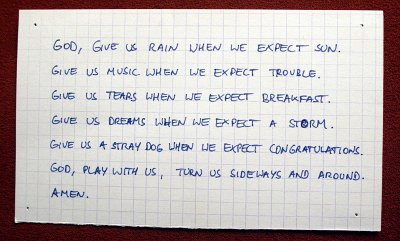 GOD, GIVE US RAIN WHEN WE EXPECT SUN.
GIVE US MUSIC WHEN WE EXPECT TROUBLE.
GIVE US TEARS WHEN WE EXPECT BREAKFAST.
GIVE US DREAMS WHEN WE EXPECT A STORM.
GIVE US A STRAY DOG WHEN WE EXPECT CONGRATULATIONS.
GOD, PLAY WITH US, TURN US SIDEWAYS AND AROUND.
AMEN.